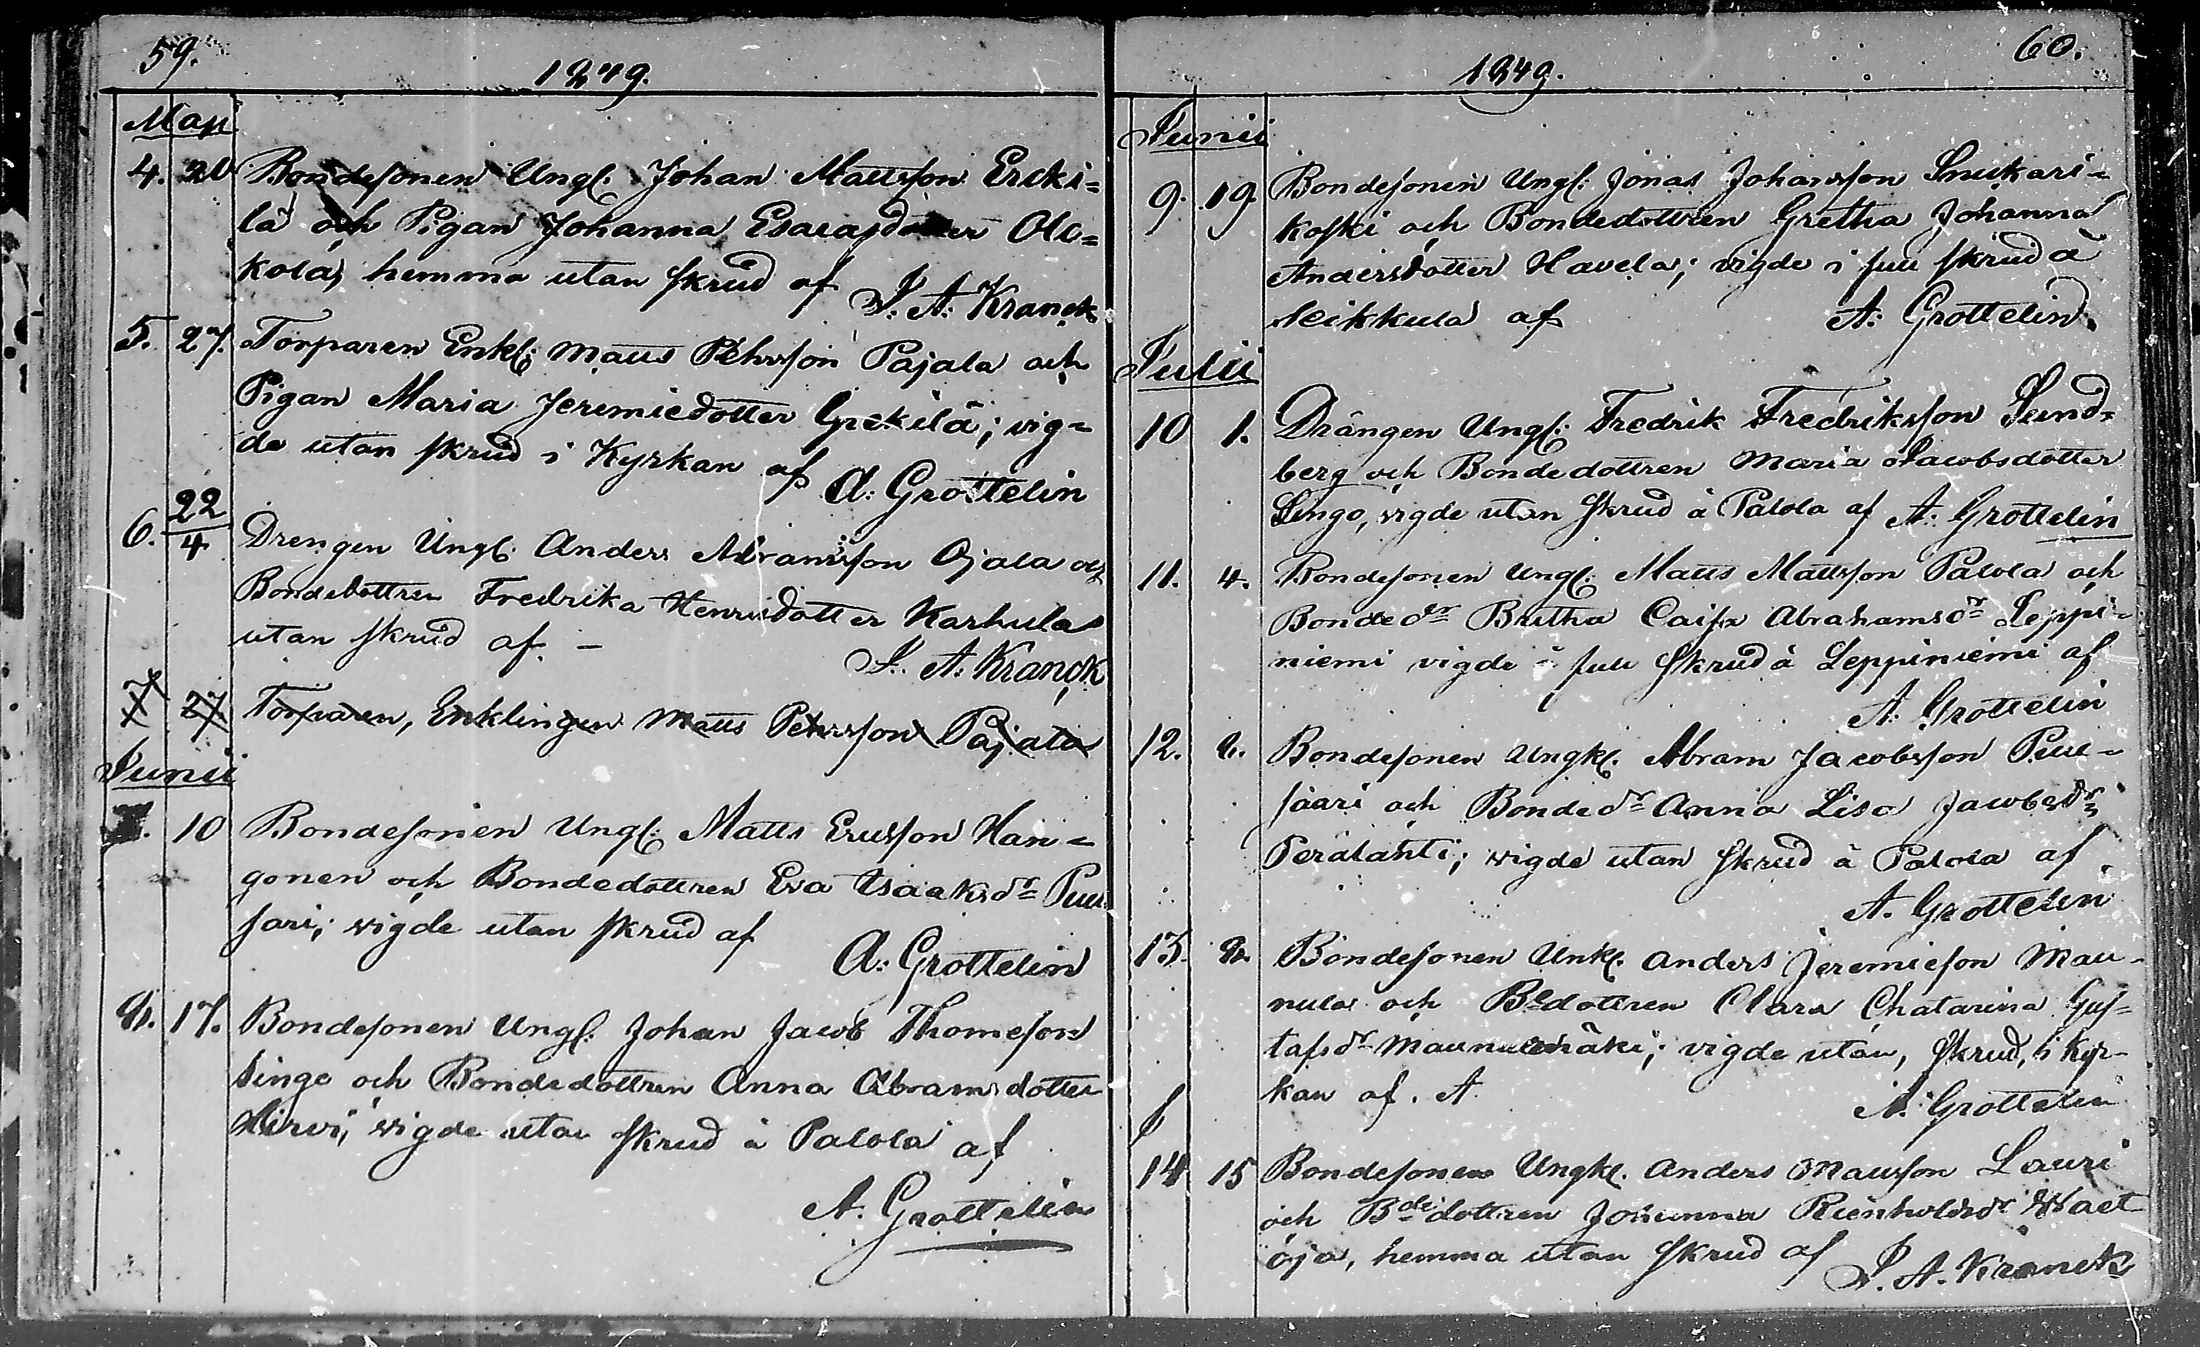 59.
1849.
Maji
4. 20 Bondesonen Ungl. Johan Mattsson Ercki=
lä och Pigan Johanna Esaiasdotter Ala=
kola, hemma utan skrud af J. A: Kranck
5. 27. Torparen Enkl: Matts Pehrsson Pajala och
Pigan Maria Jeremiedotter Grekilä; vig=
de utan skrud i Kyrkan af A: Grottelin
6. 22/4 Drengen Ungl. Anders Abramsson Ojala och
Bondedottren Fredrika Henricsdotter Karhula
utan skrud af. – J. A: Kranck
7 27. Torparen, Enklingen Matts Pehrsson Pajala
Junii
7. 10 Bondesonen Ungl: Matts Ericsson Han=
gonen och Bondedottren Eva Isaaksdr Puu
sari; vigde utan skrud af
A: Grottelin
8. 17. Bondesonen Ungl: Johan Jacob Thomeson
Singo och Bondedottren Anna Abramsdotter
Hirvi; vigde utan skrud å Palola af
A. Grottelin
60.
1849.
Junii
9. 19. Bondesonen Ungl: Jonas Johansson Snickari=
koski och Bondedottren Gretha Johanna
Andersdotter Havela; vigde i full skrud å
Leikkula af A: Grottelin.
Julii
10 1. Drängen Ungl: Fredrik Fredriksson Sund=
berg och Bondedottren Maria Jacobsdotter
Singo, vigde utan skrud å Palola af A: Grottelin
11. 4. Bondesonen Ungl: Matts Mattsson Palola och
Bondedr Britha Caisa Abrahamsdr Leppi=
niemi vigde i full skrud å Leppiniemi af
A: Grottelin
12. 8. Bondesonen Ungkl. Abram Jacobsson Puu=
saari och Bondedr Anna Lisa Jacobsdr
Perälahti; vigde utan skrud å Palola af
A. Grottelin
13. 8. Bondesonen Unkl. Anders Jeremieson Mau=
nula och Bdedottren Clara Chatarina Gus=
tafsdr Maunulamäki; vigde utan, skrud, i Kyr=
kan af. A A: Grottelin
14 15 Bondesonen Ungkl. Anders Mattsson Lauri
och Bdedottren Johanna Rienholdsdr
oja, hemma utan skrud af J. A. Kranck